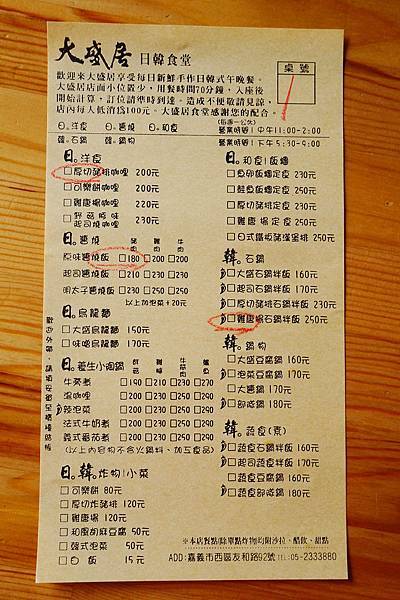 大盛居 日韓食堂
桌號
歡迎來大盛居享受每日新鮮手作日韓式午晚餐。
大盛居店面小位置少，用餐時間70分鐘，入座後
開始計算，訂位請準時到達。造成不便敬請見諒，
店內每人低消為100元。大盛居食堂感謝您的配合。
日。洋食 日。醬燒 日。和食
(每週一公休)
營業時間1 中午11:00-2:00
韓。石鍋 韓。鍋物
營業時間1 下午5:30-9:00
日。洋食
厚切豬排咖哩 200元
可樂餅咖哩 200元
雞唐揚咖哩 220元
鮮菇原味
起司燒咖哩 230元
日。醬燒 豬肉 雞肉 牛肉
原味醬燒飯 180 200 200
起司醬燒飯 210 230 230
明太子醬燒飯 210 230 230
以上加泡菜+20元
日。烏龍麵
大盛烏龍麵 150元
味噌烏龍麵 170元
日。養生小湯鍋
牛蒡煮 190 210 230 270
湯咖哩 200 220 240 290
辣泡菜 200 220 240 290
法式牛奶煮 200 220 240 290
義式番茄煮 200 220 240 290
(以上內容物不含火鍋料、加工食品)
日。韓。炸物1小菜
可樂餅 80元
厚切炸豬排 120元
雞唐揚 120元
和風胡麻豆腐 50元
韓式泡菜 50元
白飯 15元
日。和食1飯糰
魚卵飯糰定食 230元
鮭魚飯糰定食 250元
厚切豬排定食 230元
雞唐揚定食 250元
日式鐵板豬漢堡排 250元
韓。石鍋
大盛石鍋拌飯 160元
起司石鍋拌飯 170元
厚切豬排石鍋拌飯 230元
雞唐揚石鍋拌飯 250元
韓。鍋物
大盛豆腐鍋 160元
泡菜豆腐鍋 170元
大醬鍋 170元
部隊鍋 180元
韓。蔬食(素)
蔬食石鍋拌飯 160元
起司蔬食拌飯 170元
蔬食豆腐鍋 160元
蔬食部隊鍋 180元
※本店餐點/除單點炸物均附沙拉、醋飲、甜點
ADD:嘉義市西區友和路92號 TEL:05-2333880